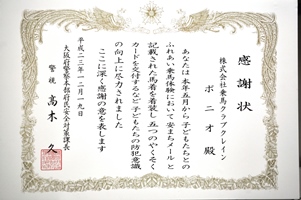 感謝状
株式会社乗馬クラブクレイン
ポニオ殿
あなたは本年五月から子どもたちとの
ふれあい乗馬体験において安まちメールと
記載された馬着を着用し五つのやくそく
カードを交付するなど子どもたちの防犯意識
の向上に尽力されました
ここに深く感謝の意を表します
平成二三年一二月一九日
大阪府警察本部府民安全対策課長
警視 高木 久